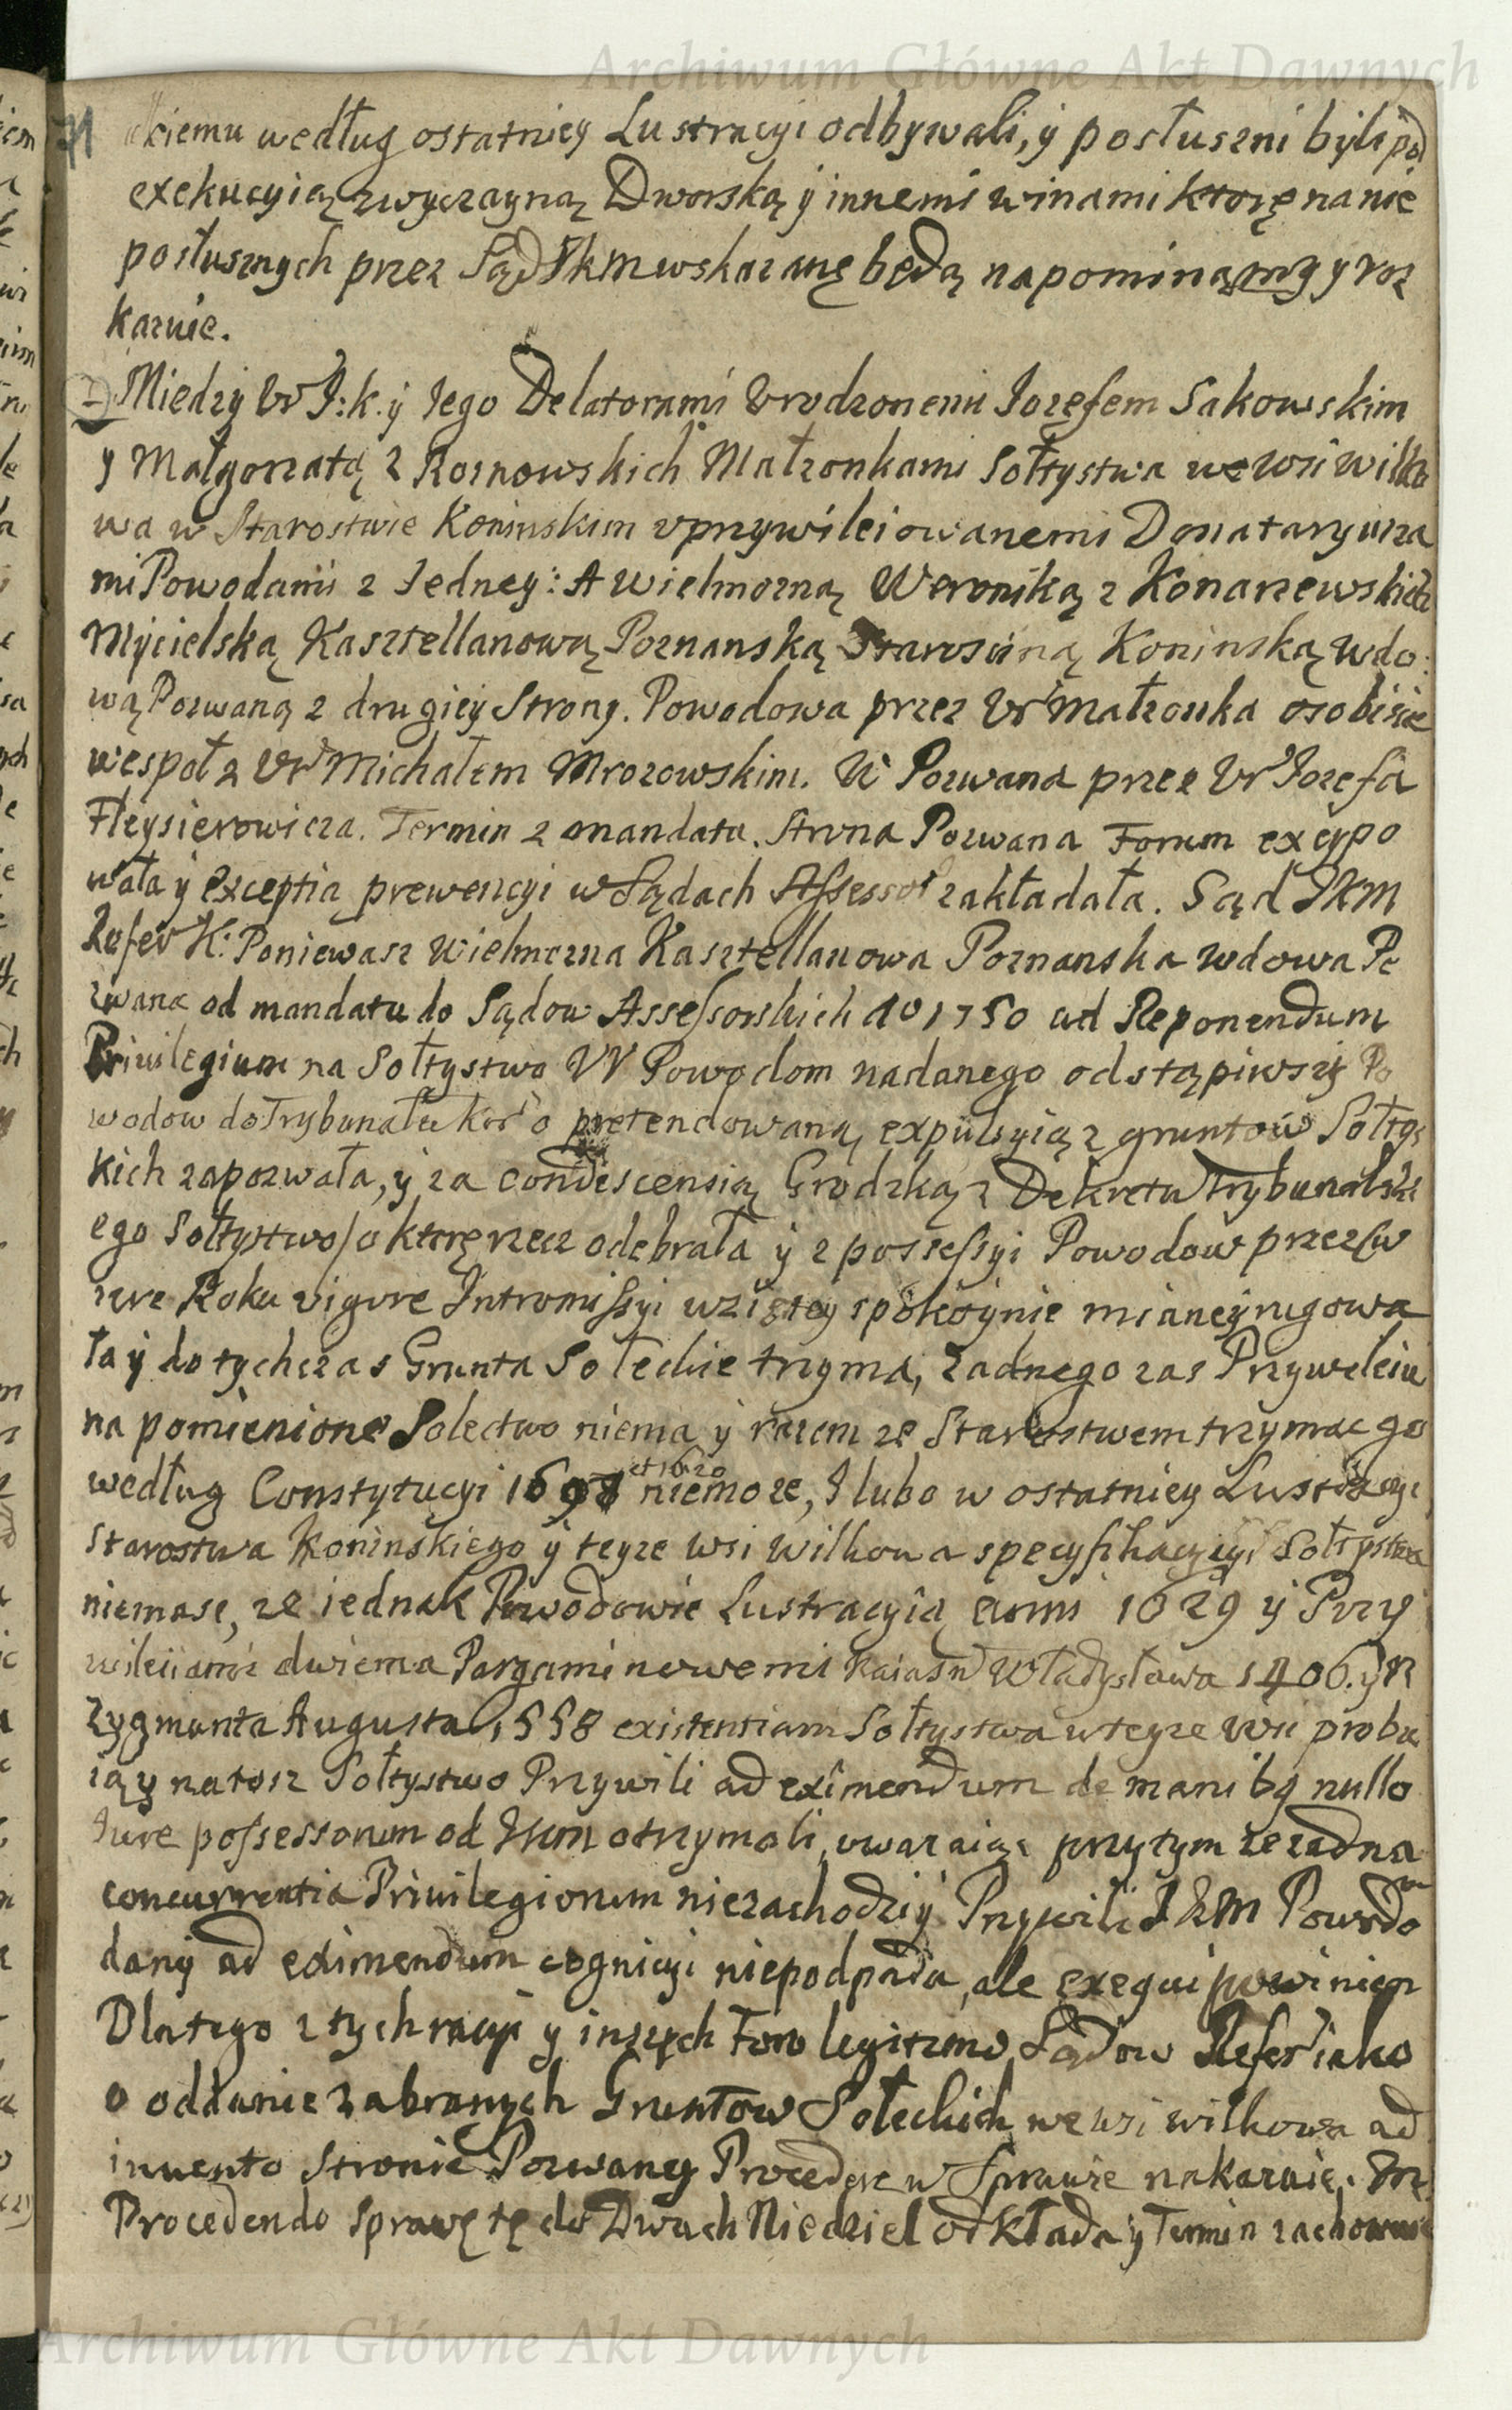 Archiwum Główne Akt Dawnych
71
ckiemu według ostatniey Lustracyi odbywali, y posłuszni byli pod
exekucyią zwyczayną Dworską y innemi winami ktorę na nie
posłusznych przez Sąd JKM wskazanę będą napominamy y roz
kazuie.
Miedzy Ur J: k. y Jego Delatorami Urodzonemi Jozefem Sakowskim
y Małgorzatą z Roznowskich Małzonkami Sołtystwa we wsi Wilko
wa w Starostwie Koninskim uprzywileiowanemi Donataryusza
mi Powodami z Jedney: A Wielmozną Weroniką z Konarzewskich
Mycielską Kasztellanową Poznanską Starosciną Koninską wdo:
wą Pozwaną z drugiey Strony. Powodowa przez Ur Małzonka osobiscie
wespoł z Ur Michałem Mrozowskim. A Pozwana przez Ur Jozefa
Fleysierowicza. Termin z mandatu. Strona Pozwana Forum excypo
wała y exceptią prewencyi w Sądach Assessor zakładała. Sąd JKM
Refer K: Poniewasz Wielmozna Kasztellanowa Poznanska wdowa Po
zwana od mandatu do Sądow Assessorskich Ao 1750 ad Reponendum
Priuilegium na Sołtystwo UU Powodom nadanego odstąpiwszy Po
wodow do Trybunału Kor o pretendowaną expulsyią z gruntow Sołtys
kich zapozwała, y za condescensią Grodzką z Dekretu Trybunalski
ego Sołtystwo o ktorę rzecz odebrała y z possessyi Powodow przez czw
rure Roku vigore Intromissyi wziętey spokoynie mianey rugowa
ła y do tychczas Grunta Sołeckie trzyma, zadnego zas Przywileiu
na pomienione Solectwo niema y razem ze Starostwem trzymac go
według Constytucyi 1698 et 1620 niemoze, I lubo w ostatniey Lustracyi
Starostwa Koninskiego y teyze wsi Wilkowa specyfikacyi Sołtystwa
niemasz, ze iednak Powodowie Lustracyią anni 1629 y Przy
wileiami dwiema Pargaminowemi Naiasn Władysława 1406. y N
Zygmunta Augusta 1558 existentiam Sołtystwa w teyze wsi probu
ią y na tosz Sołtystwo Przywili ad eximendum de manibq nullo
Iure possessorum od JKM otrzymali, uwazaiąc przytym ze zadna
concurrentia Priuilegiorum niezachodzi y Przywili JKM Powodom
dany ad eximendum cognicyi niepodpada, ale exequi powinien
Dlatego z tych racyi y inszych Foro legitimo Sądow Refer iako
o oddanie zabranych Gruntow Sołeckich we wsi Wilkowa ad
inuento Stronie Pozwaney Procedere w Sprawie nakazuie. In
Procedendo sprawę tę do Dwuch Niedziel odkłada y Termin zachowuie
Archiwum Główne Akt Dawnych